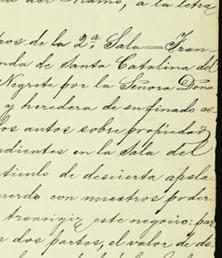 del mismo, a la letra
ros de la 2ª Sala = Fran-
nda de Santa Catalina del
Negrete por la Señora Doña
y heredera de su finado es
los autos sobre propiedad
ndientes en la Sala del
artículo de desierta apela
uerdo con nuestros poder
transigir este negocio: par
e dos partes, el valor de do